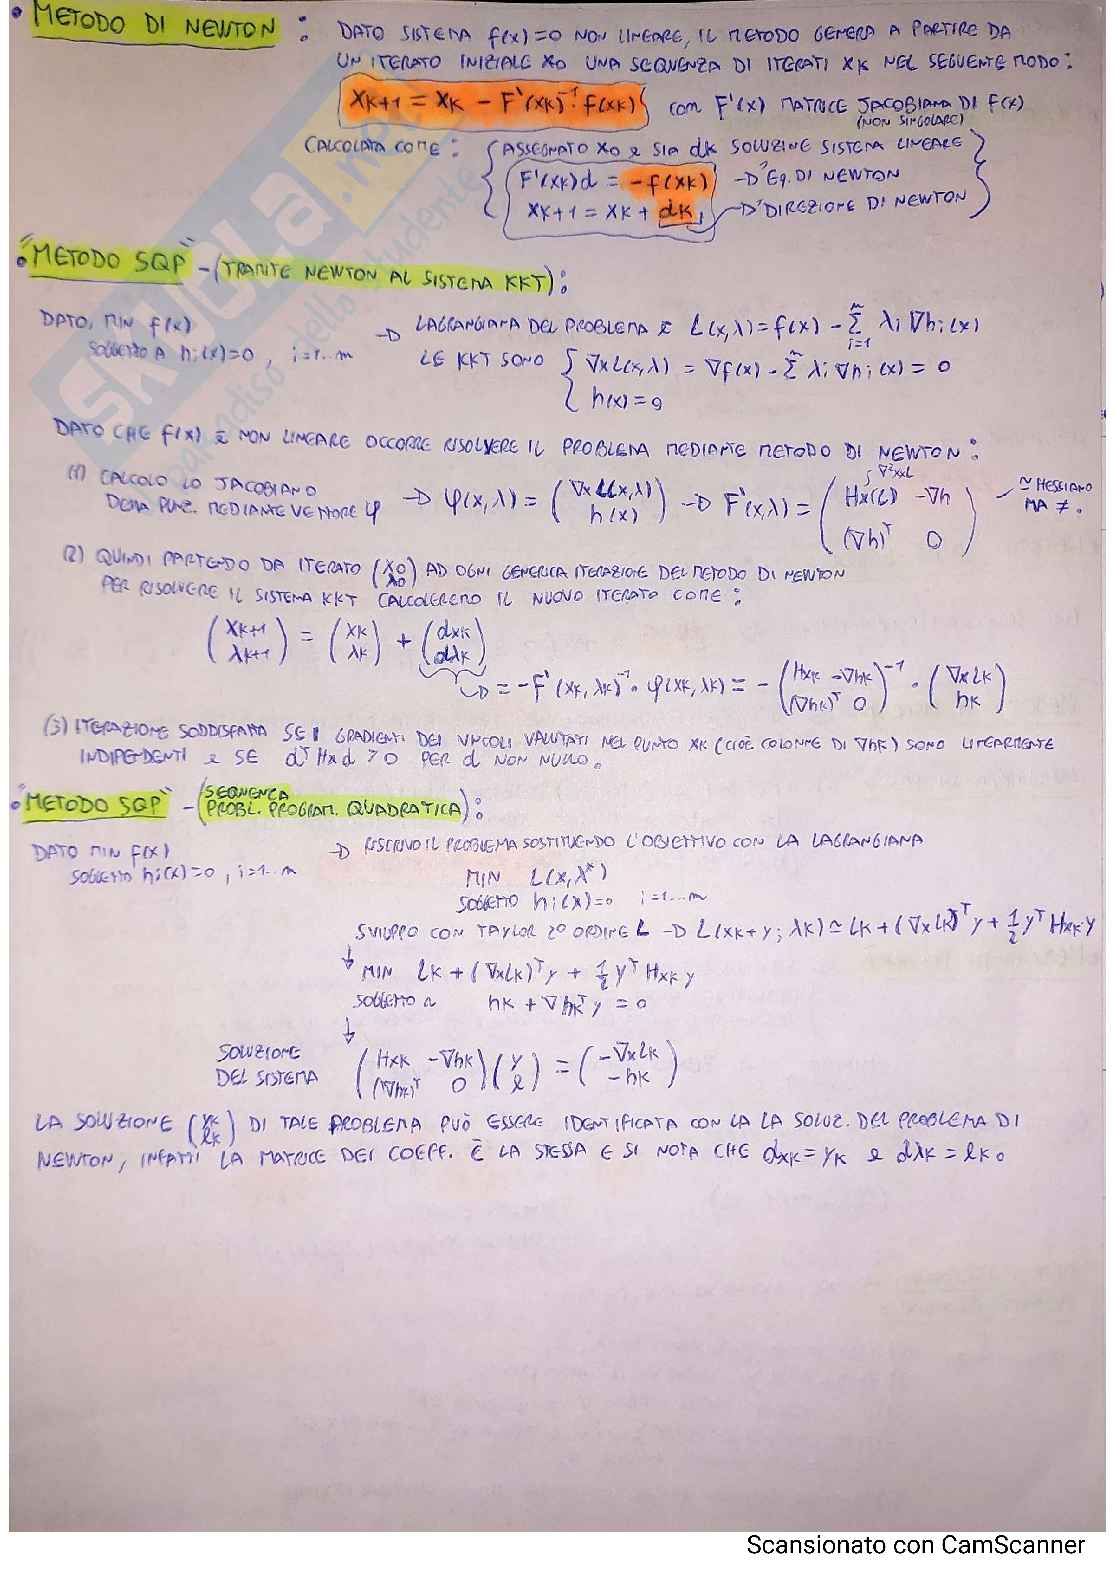 • METODO DI NEWTON : DATO SISTEMA f(x)=0 NON LINEARE, IL METODO GENERA A PARTIRE DA
UN ITERATO INIZIALE X0 UNA SEQUENZA DI ITERATI XK NEL SEGUENTE MODO:
XK+1 = XK - F'(XK)⁻¹·f(XK) con F'(X) MATRICE JACOBIANA DI f(x)
(NON SINGOLARE)
CALCOLATA COME: { ASSEGNATO X0 e SIA dK SOLUZINE SISTEMA LINEARE }
F'(XK)d = -f(XK) → EQ. DI NEWTON
XK+1 = XK + dK → DIREZIONE DI NEWTON
• "METODO SQP" - (TRAMITE NEWTON AL SISTEMA KKT):
DATO, MIN f(x) → LAGRANGIANA DEL PROBLEMA È L(x,λ)=f(x) - Σ λi ∇hi(x)
i=1
SOGGETTO A hi(x)=0, i=1..m
LE KKT SONO { ∇xL(x,λ) = ∇f(x) - Σ λi ∇hi(x) = 0
h(x)=0
DATO CHE f(x) È NON LINEARE OCCORRE RISOLVERE IL PROBLEMA MEDIANTE METODO DI NEWTON:
(1) CALCOLO LO JACOBIANO
DELLA FUNZ. MEDIANTE VETTORE φ → φ(x,λ) = (∇xL(x,λ) h(x)) → F'(x,λ) = (Hx(L) -∇h (∇h)ᵀ 0) ≃ HESSIANO MA ≠.
∇²xxL
(2) QUINDI PARTENDO DA ITERATO (X0 λ0) AD OGNI GENERICA ITERAZIONE DEL METODO DI NEWTON
PER RISOLVERE IL SISTEMA KKT CALCOLEREMO IL NUOVO ITERATO COME:
(XK+1 λK+1) = (XK λK) + (dXK dλK)
→ = -F'(XK, λK)⁻¹·φ(XK, λK) = -(HXK -∇hK (∇hK)ᵀ 0)⁻¹·(∇xLK hK)
(3) ITERAZIONE SODDISFATTA SE I GRADIENTI DEI VINCOLI VALUTATI NEL PUNTO XK (CIOÈ COLONNE DI ∇hK) SONO LINEARMENTE
INDIPENDENTI e SE dᵀHxd > 0 PER d NON NULLO.
• "METODO SQP" - (SEQUENZA
PROBL. PROGRAM. QUADRATICA):
DATO MIN f(x) → RISCRIVO IL PROBLEMA SOSTITUENDO L'OBIETTIVO CON LA LAGRANGIANA
SOGGETTO hi(x)=0, i=1..m
MIN L(x,λ*)
SOGGETTO hi(x)=0 i=1...m
SVILUPPO CON TAYLOR 2° ORDINE L → L(XK+y; λK) ≃ LK + (∇xLK)ᵀy + 1/2 yᵀHXK y
↓ MIN LK + (∇xLK)ᵀy + 1/2 yᵀHXK y
SOGGETTO a hK + ∇hKᵀy = 0
↓
SOLUZIONE
DEL SISTEMA (HXK -∇hK (∇hK)ᵀ 0)(y l) = (-∇xLK -hK)
LA SOLUZIONE (yK lK) DI TALE PROBLEMA PUÒ ESSERE IDENTIFICATA CON LA LA SOLUZ. DEL PROBLEMA DI
NEWTON, INFATTI LA MATRICE DEI COEFF. È LA STESSA E SI NOTA CHE dXK=yK e dλK=lK.
SKUOLA.net
paradiso dello studente
Scansionato con CamScanner